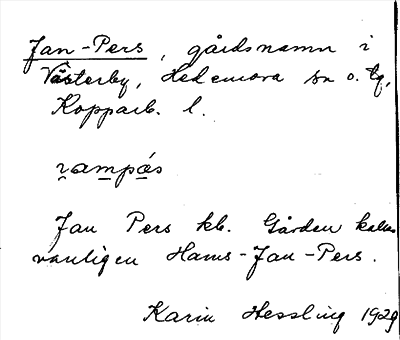 Jan-Pers, gårdsnamn i
Västerby, Hedemora sn o. tg,
Kopparb. l.
Jan Pers kb. Gården kallas
vanligen Hans-Jan-Pers.
Karin Hessling 1929